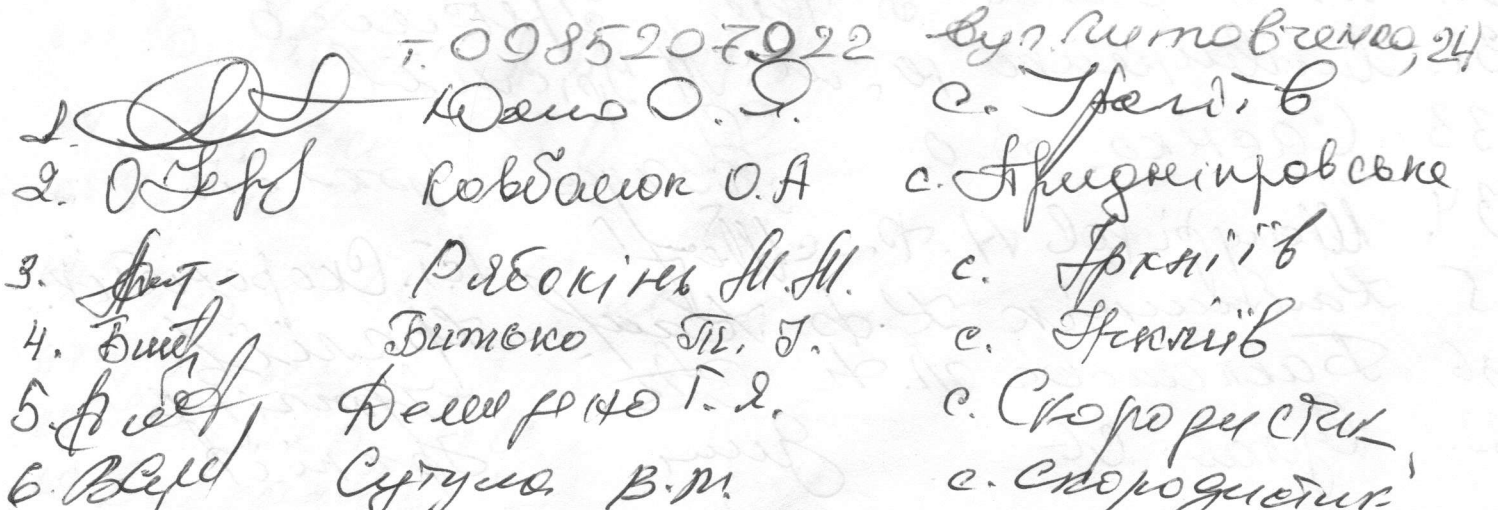 т. 0985207922 вул. Литовченка, 24
1. Юдако О. Я. с. Іркліїв
2. Ковбанюк О.А с. Придніпровське
3. Рябокінь М.М. с. Іркліїв
4. Битько Т. І. с. Іркліїв
5. Г. Я. с. Скородистик
6. Сутула В.М. с. Скородистик